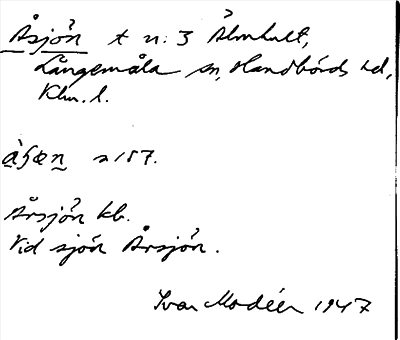 Åsjön t n:3 Älmhult,
Långemåla sn, Handbörds hd,
Klm. l.
àʃœn s 187.
Årsjön kb.
Vid sjön Årsjön.
Ivar Modéer 1947